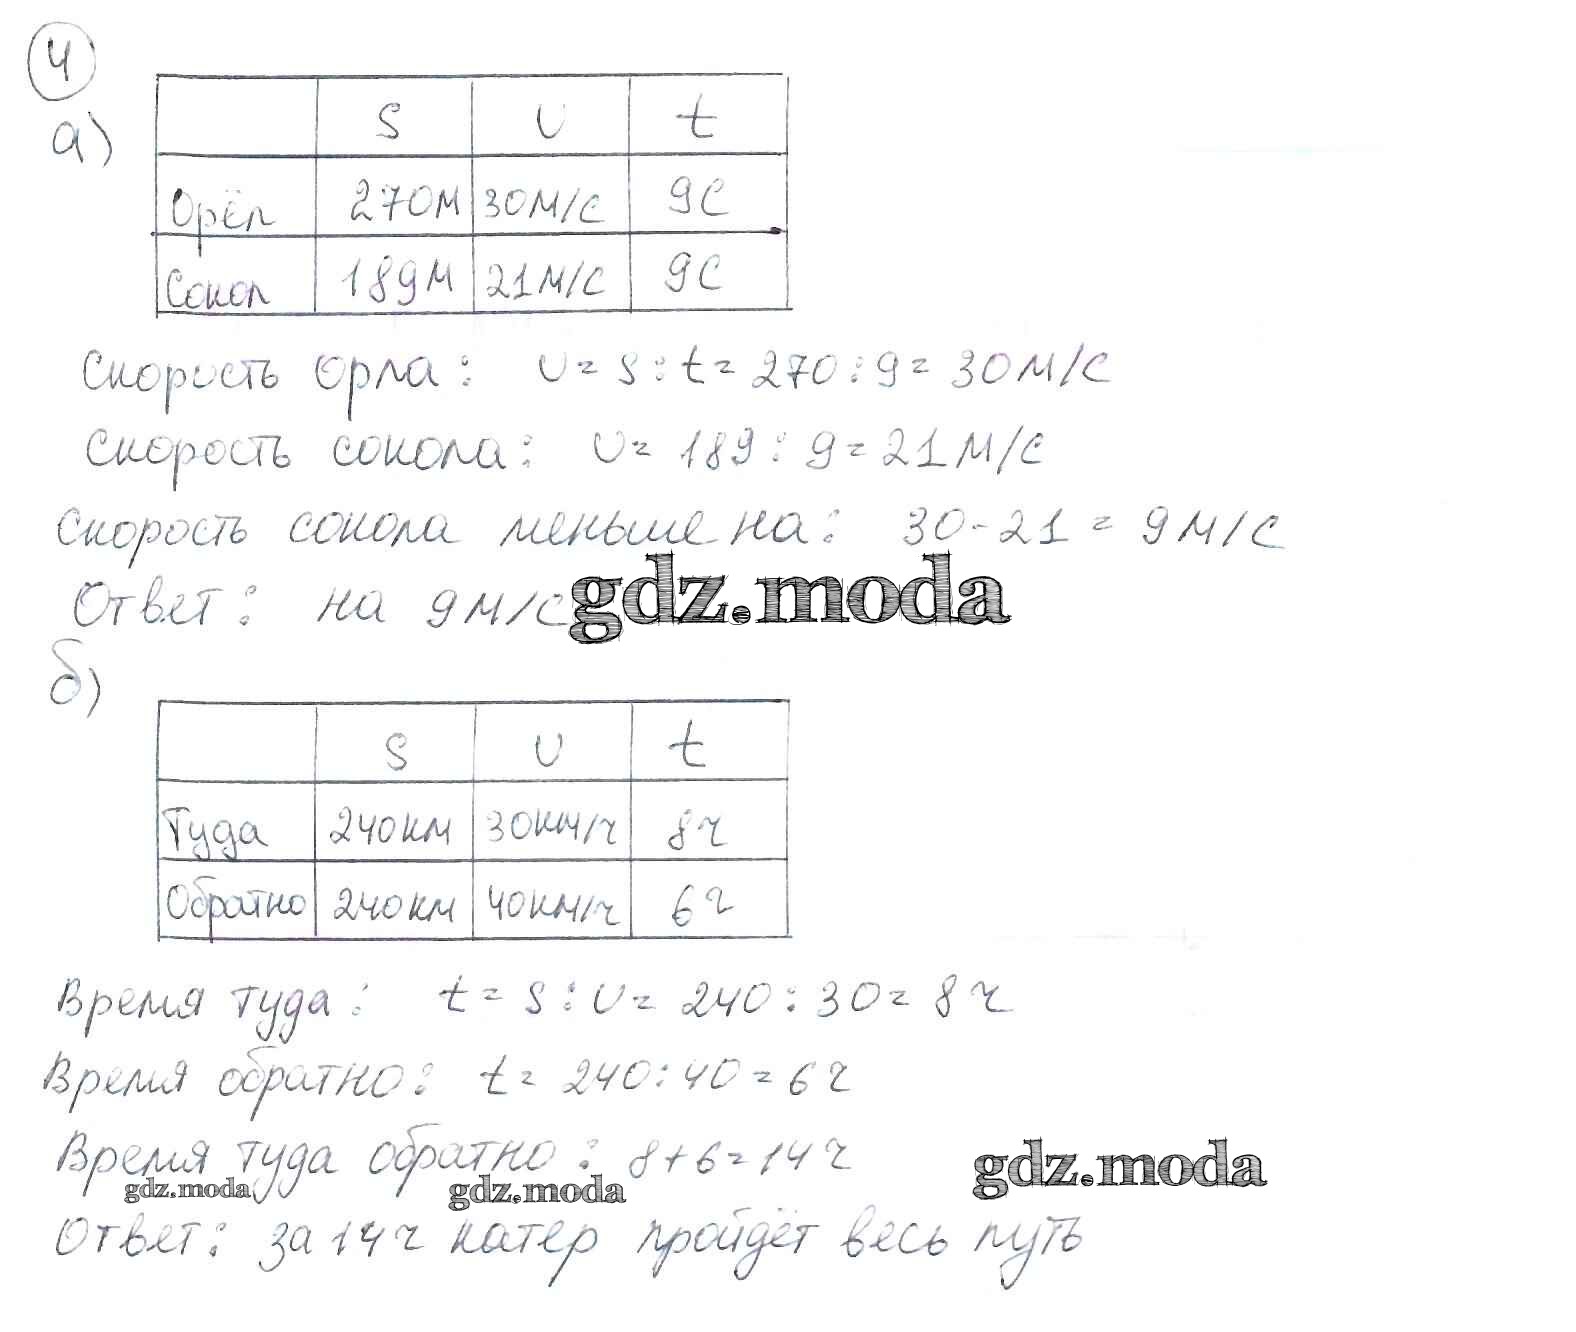 4
а)
S υ t
Орёл 270м 30м/с 9с
Сокол 189м 21м/с 9с
Скорость орла: υ = s : t = 270 : 9 = 30м/с
Скорость сокола: υ = 189 : 9 = 21м/с
Скорость сокола меньше на: 30 - 21 = 9м/с
Ответ: на 9м/с
gdz.moda
б)
S υ t
Туда 240км 30км/ч 8ч
Обратно 240км 40км/ч 6ч
Время туда: t = s : υ = 240 : 30 = 8ч
Время обратно: t = 240 : 40 = 6ч
Время туда обратно: 8 + 6 = 14ч
gdz.moda
gdz.moda gdz.moda
Ответ: за 14ч катер пройдёт весь путь